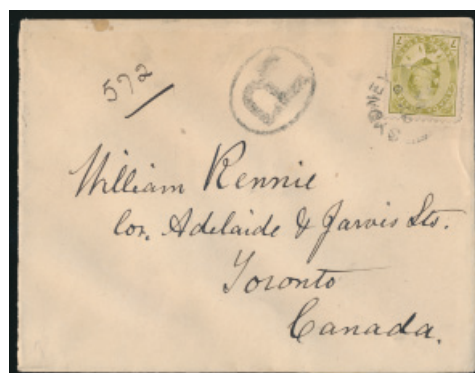 572
R
SYDNEY
William Rennie
Cor. Adelaide & Jarvis Sts.
Toronto
Canada.